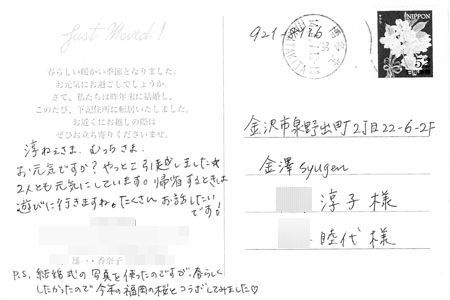 Just Moved!
春らしい暖かい季節となりました。
お元気にお過ごしでしょうか。
さて、私たちは昨年末に結婚し、
このたび、下記住所に転居いたしました。
お近くにお越しの際は
ぜひお立ち寄りくださいませ。
淳ねぇさま、むっちさま、
お元気ですか?やっとこ引越しました★
2人とも元気にしています。帰省するときは
遊びに行きますね。たくさんお話したい
です!
雄一・香奈子
P.S. 結婚式の写真を使ったのですが、春らしく
したかったので今年の福岡の桜とコラボしてみました♡
NIPPON
921-
金沢市泉野出町2丁目22-6-2F
金澤syugen
淳子様
睦代様